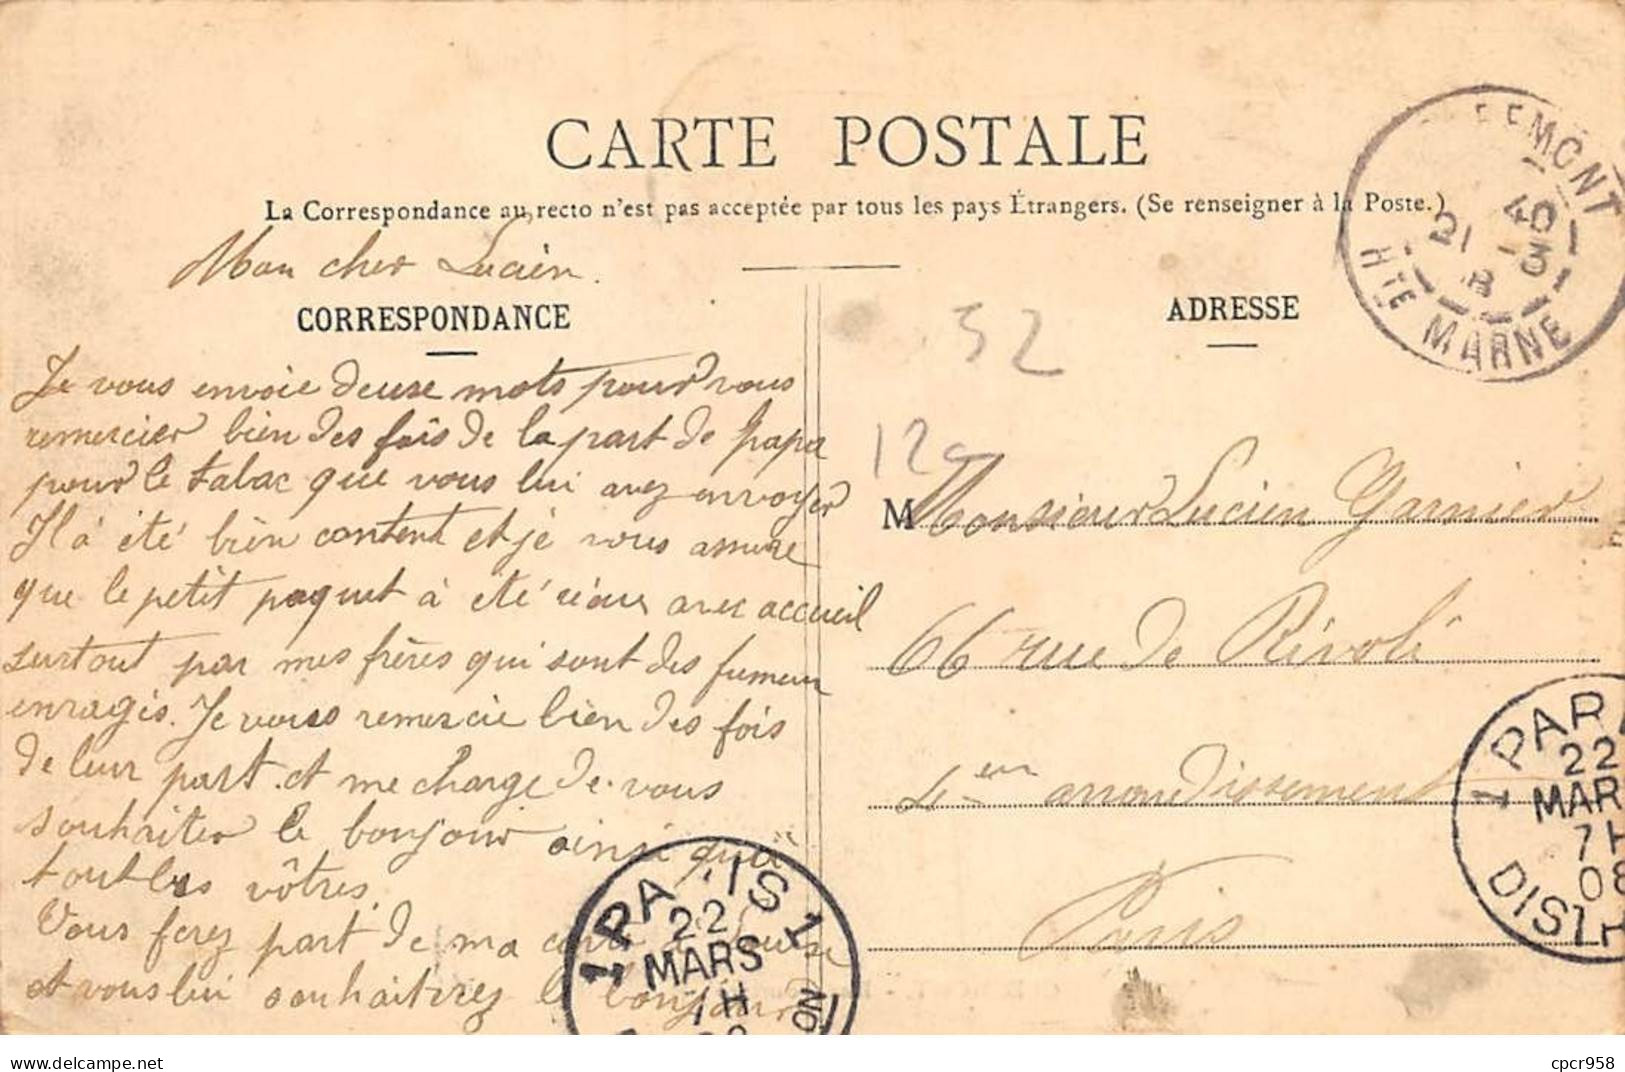 CARTE POSTALE
La Correspondance au recto n'est pas acceptée par tous les pays Étrangers. (Se renseigner à la Poste.)
Mon cher Lucien.
CORRESPONDANCE
Je vous envoie deuse mots pour vous
remercier bien des fois de la part de papa
pour le tabac que vous lui avez envoyer
Il à été bien content et je vous assure
que le petit paquet à été réçu avec accueil
surtout par mes frères qui sont des fumeur
enragis. Je vous remercie bien des fois
de leur part et me charge de vous
souhaiter le bonjour ainsi qu'à
tout les vôtres.
Vous ferez part de ma carte à Louise
et vous lui souhaiterez le bonjour
ADRESSE
52
12c
M Monsieur Lucien Garnier
66 rue de Rivoli
4em arrondissement
Paris
EMONT
Hte MARNE
21 -3
08
40
1 PARIS 1
22
MARS
7H
1 PARI
22
MARS
7H
08
DISTR
cpcr958